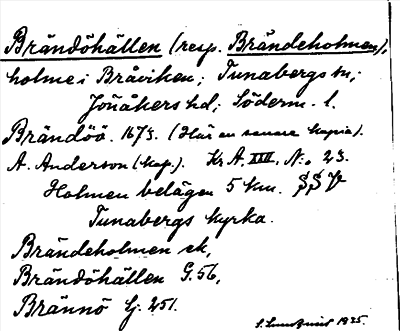 Brändöhällen (resp. Brändeholmen),
holme i Bråviken; Tunabergs sn;
Jönåkers hd; Söderm. l.
Brändöö. 1675. (Här en senare kopia).
A. Anderson (kop.). Kr. A. XIII, N:o 23.
Holmen belägen 5 km. SSV
Tunabergs kyrka.
Brändeholmen ek,
Brändöhällen G. 56,
Brännö Gj. 251.
1925.